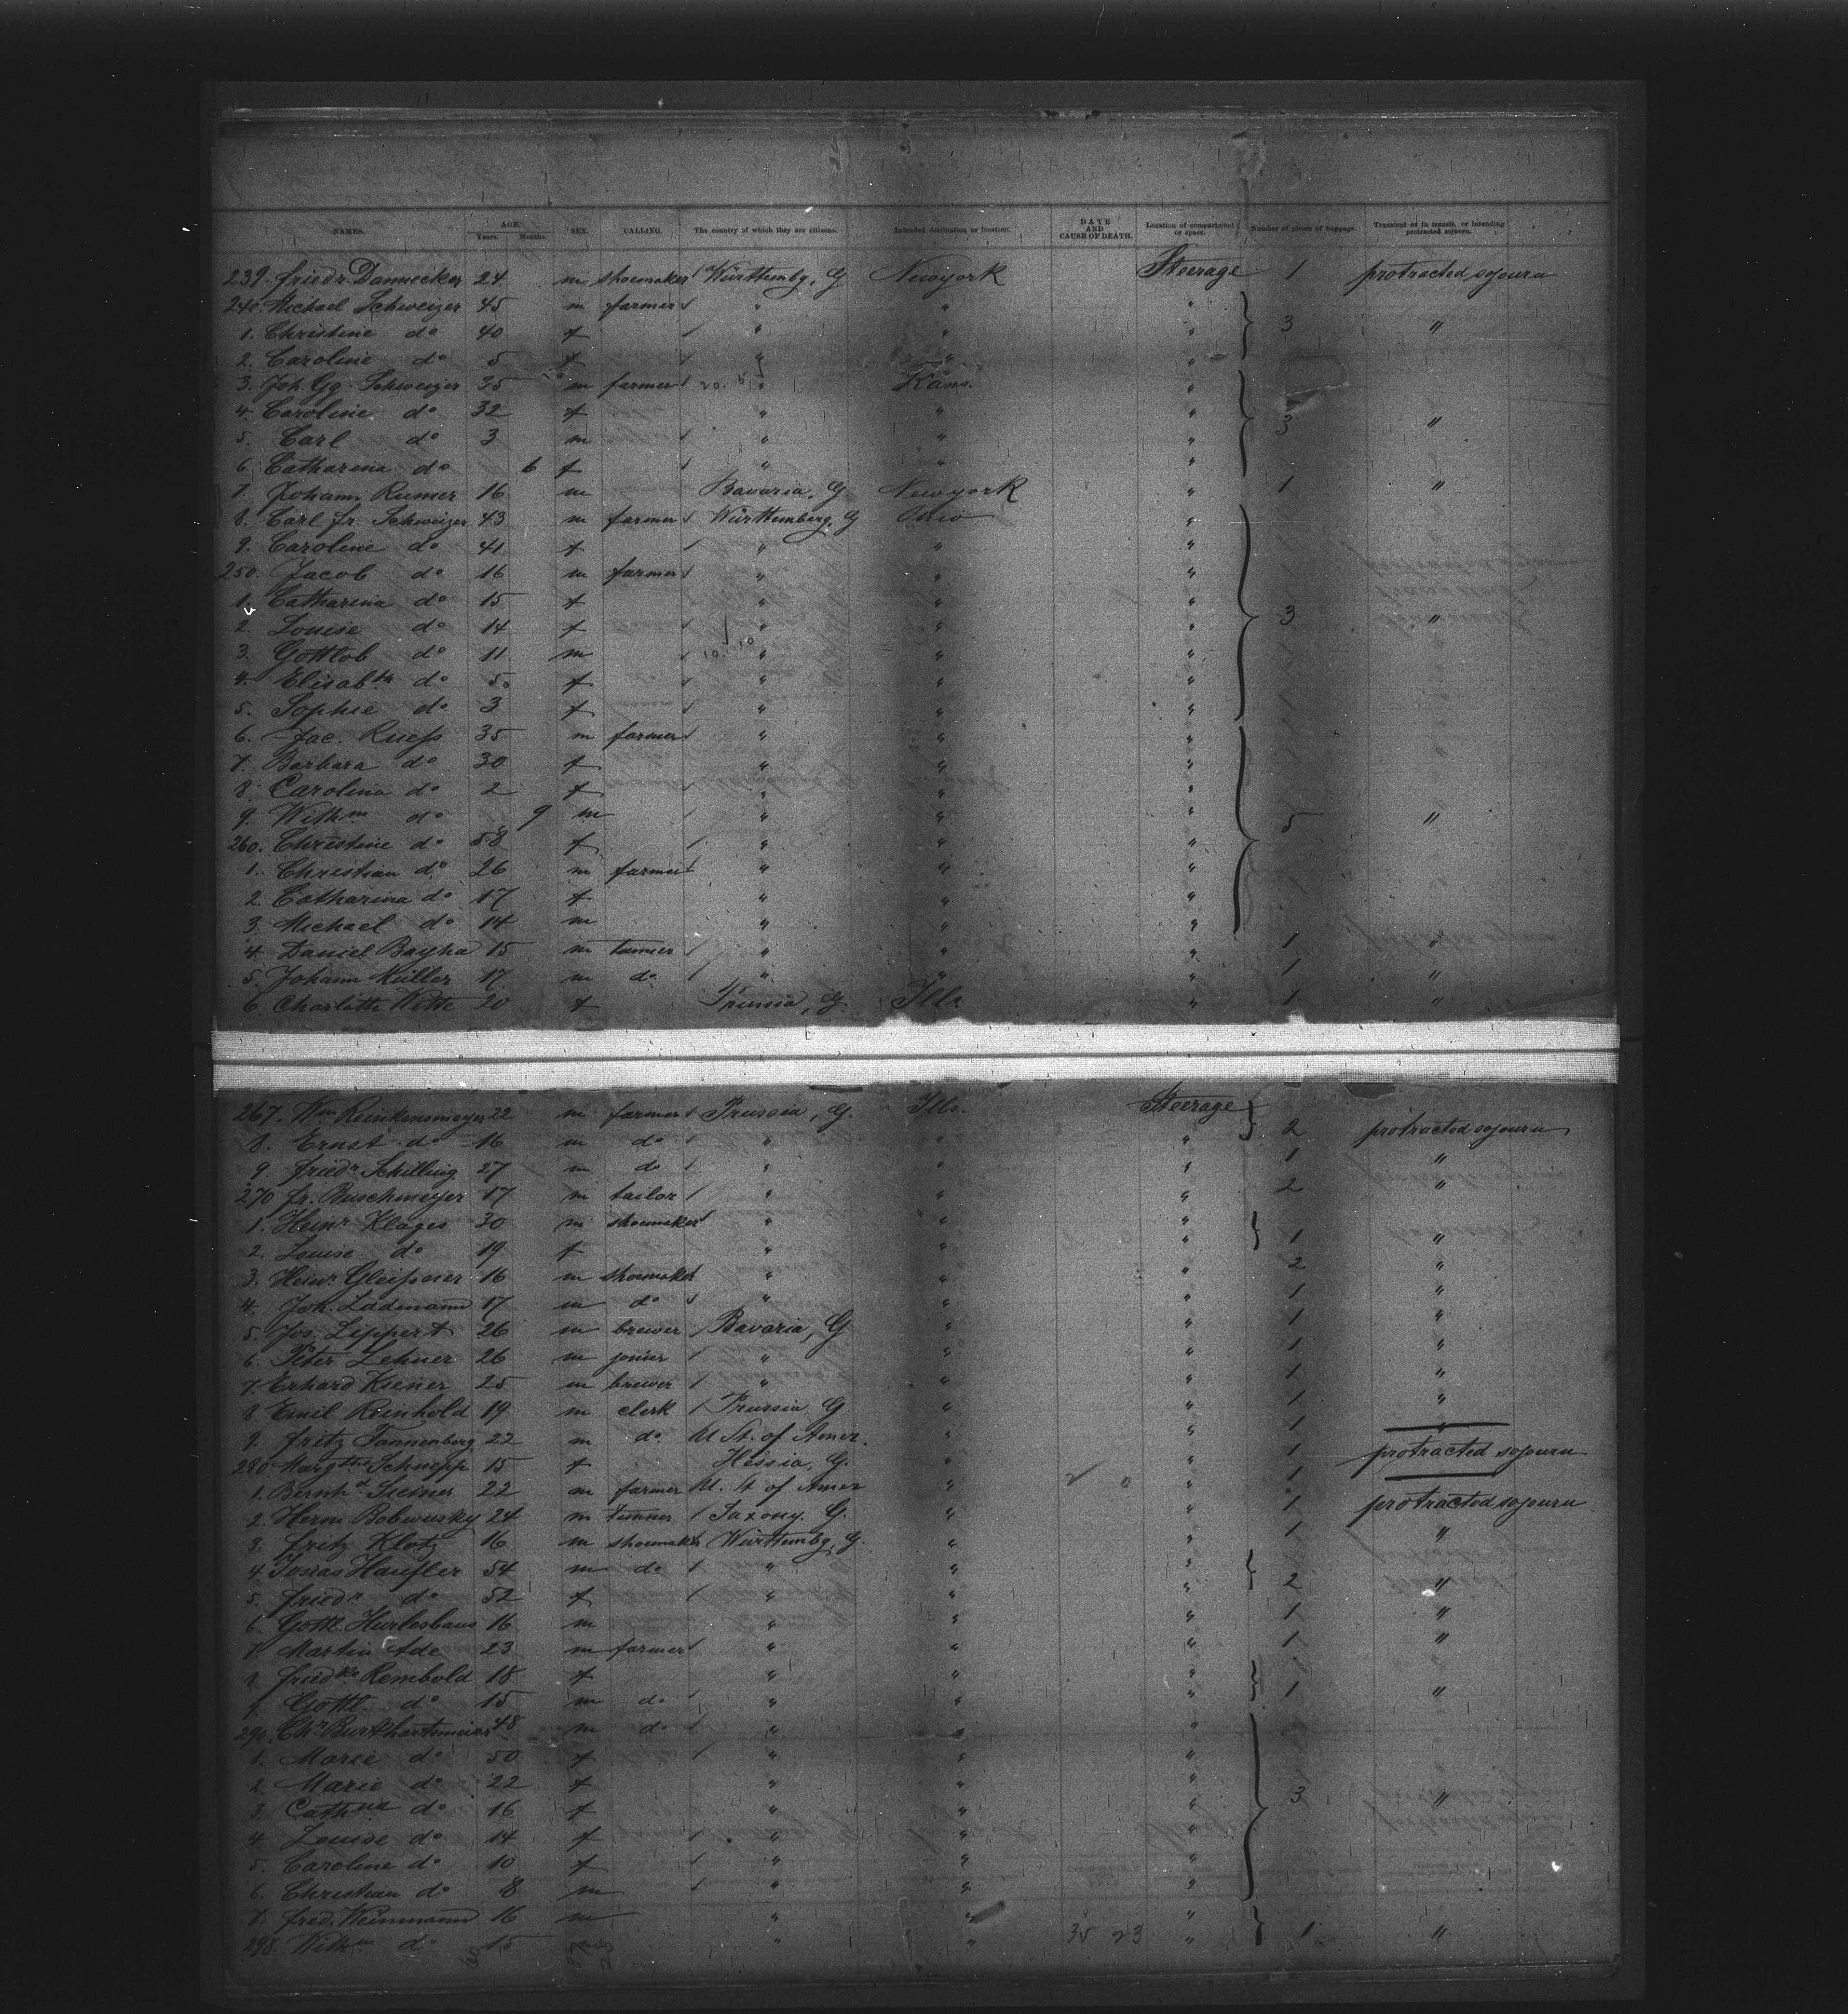 NAMES. AGE. Years. Months. SEX. CALLING. The country of which they are citizens. Intended destination or location. DATE AND CAUSE OF DEATH. Location of compartment or space. Number of pieces of baggage. Transient or in transit, or intending protracted sojourn.
239. Friedr. Dannecker 24 m shoemaker Württembg, G Newyork Steerage 1 protracted sojourn
240. Michael Schweizer 45 m farmer " " "
1. Christine do 40 f " " " 3 "
2. Caroline do 5 f " " "
3. Joh. Gg. Schweizer 35 m farmer " Kans. "
4. Caroline do 32 f " " "
5. Carl do 3 m " " " 3 "
6. Catharina do 6 f " " "
7. Johann Rumer 16 m Bavaria, G Newyork " 1 "
8. Carl Fr. Schweizer 43 m farmer Württemberg, G Ohio "
9. Caroline do 41 f " " "
250. Jacob do 16 m farmer " " "
1. Catharina do 15 f " " "
2. Louise do 14 f " " " 3 "
3. Gottlob do 11 m 10. 10 " " "
4. Elisabth do 5 f " " "
5. Sophie do 3 f " " "
6. Jac. Rueß 35 m farmer " " "
7. Barbara do 30 f " " "
8. Carolina do 2 f " " "
9. Wilhm do 9 m " " " 5 "
260. Christine do 58 f " " "
1. Christian do 26 m farmer " " "
2. Catharina do 17 f " " "
3. Michael do 14 m " " "
4. Daniel Bayha 15 m tanner " " " 1 "
5. Johann Müller 17 m do " " " 1 "
6. Charlotte Witte 20 f Prussia, G. Ills. " 1 "
267. Wm Reinkensmeyer 22 m farmer Prussia, G. Ills. Steerage
8. Ernst do 16 m do " " " 2 protracted sojourn
9. Friedr. Schilling 27 m do " " " 1 "
270 Fr. Buschmeyer 17 m tailor " " " 2 "
1. Heinr. Klages 30 m shoemaker " " "
2. Louise do 19 f " " " 1 "
3. Heinr. Gleißner 16 m shoemaker " " " 2 "
4. Joh. Lademann 17 m do " " " 1 "
5. Jos. Lippert 26 m brewer Bavaria, G " " 1 "
6. Peter Lehner 26 m joiner " " " 1 "
7. Erhard Kiener 25 m brewer " " " 1 "
8. Emil Reinhold 19 m clerk Prussia G " " 1 "
9. Fritz Tannenberg 22 m do. U St. of Amer. " " 1 "
280 Schnepp 15 f Hessia, G. " " 1 protracted sojourn
1. Bernhd 22 m farmer U. St of Amer " " 1
2. Herm. Bobwusky 24 m tanner Saxony. G. " " 1 protracted sojourn
3. Fritz Klotz 16 m shoemaker Württembg, G. " " 1 "
4. Jonas Haufler 54 m do " " "
5. Friedr do 52 f " " " 2 "
6. Gottl. Hurlebaus 16 m " " " 1 "
7. Martin Ade 23 m farmer " " " 1 "
8. Friedke Rembold 18 f " " "
9. Gottl. do 15 m do " " " 1 "
290. Chr. Burkhartsmeier 48 m do " " "
1. Marie do 50 f " " "
2. Marie do 22 f " " "
3. Cathna do 16 f " " " 3 "
4. Louise do 14 f " " "
5. Caroline do 10 f " " "
6. Christian do 8 m " " "
7. Fred. Weinmann 16 m " " "
298. Wilhm do 15 m " " 35 23 " 1 "